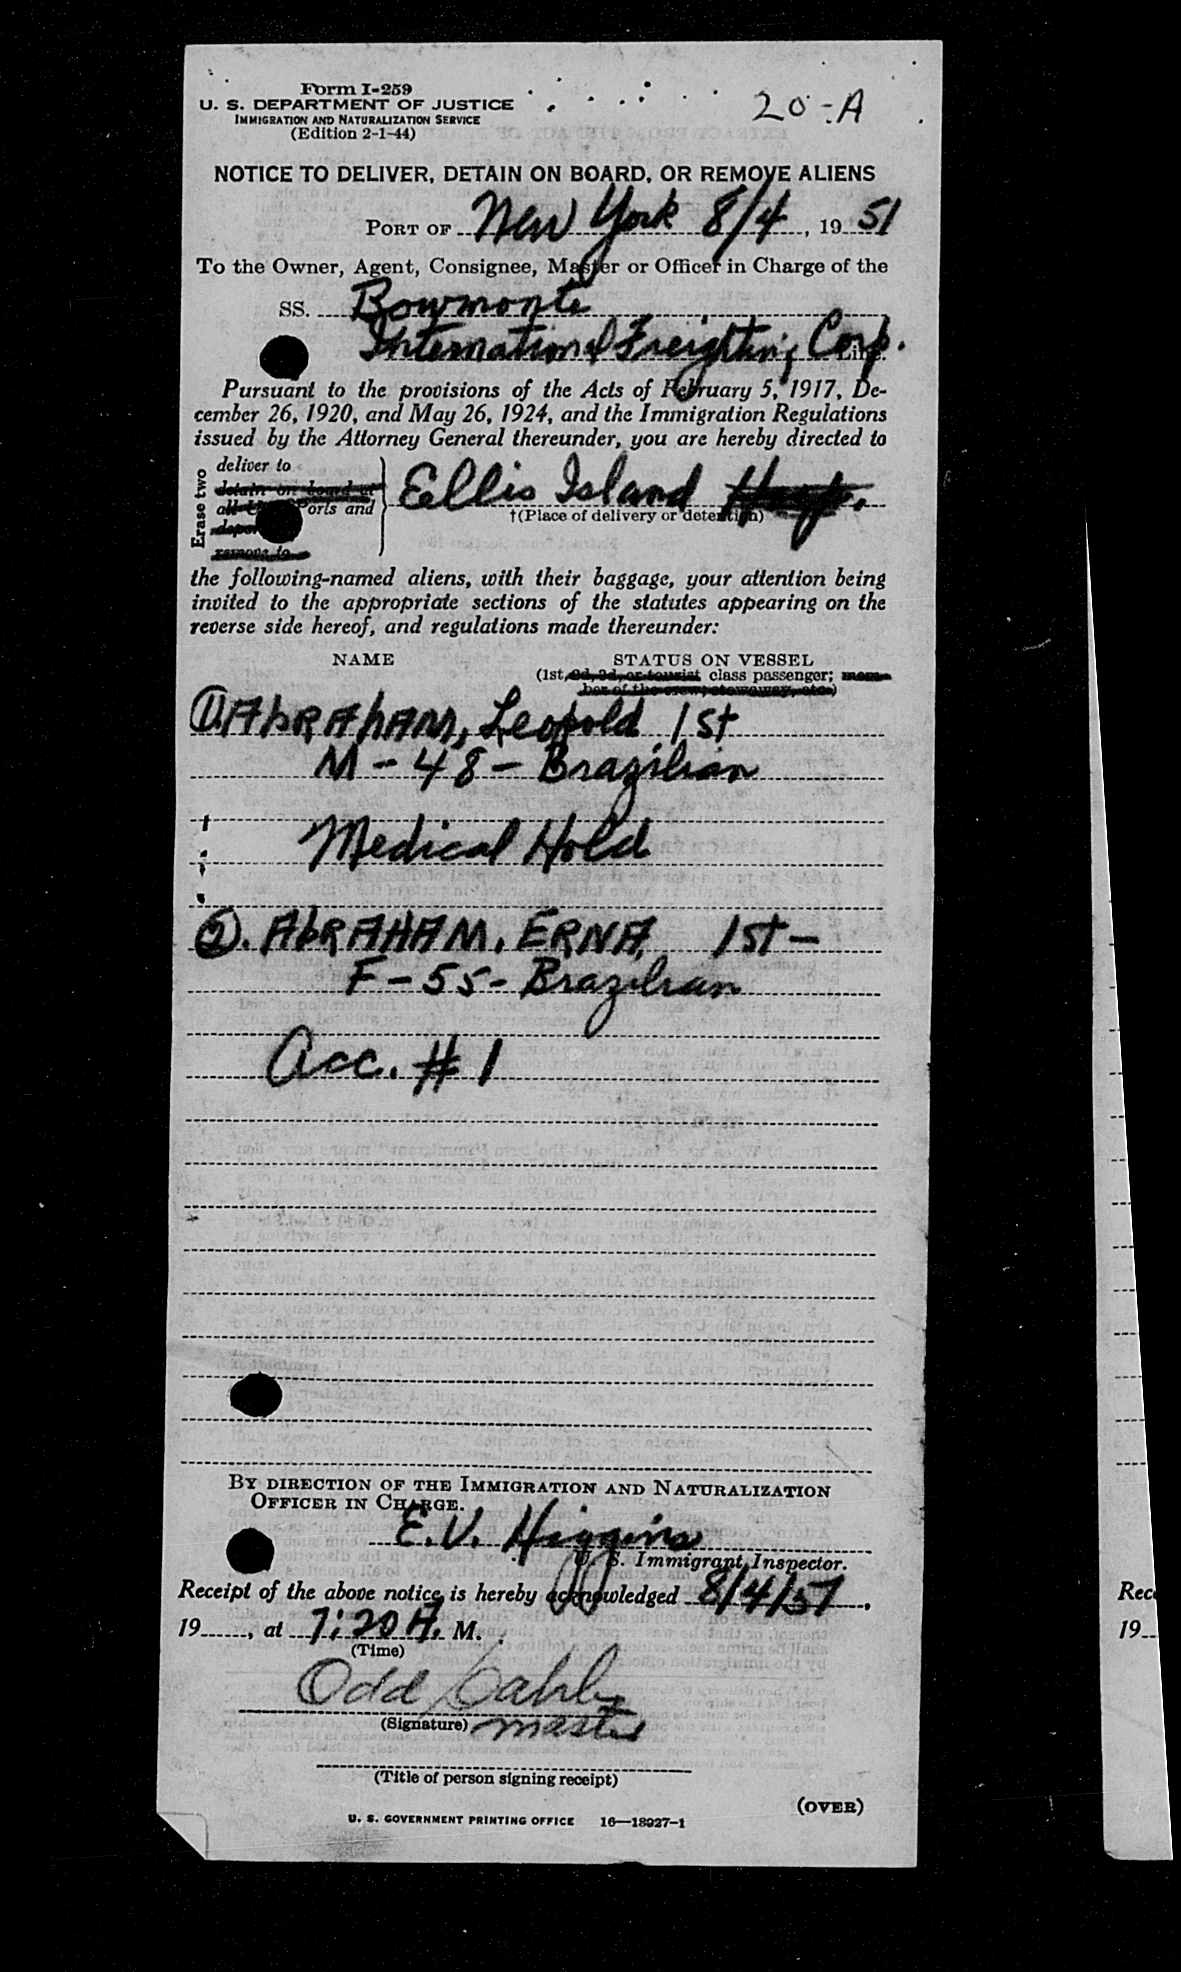 Form I-259
U. S. DEPARTMENT OF JUSTICE
IMMIGRATION AND NATURALIZATION SERVICE
(Edition 2-1-44)
20-A
NOTICE TO DELIVER, DETAIN ON BOARD, OR REMOVE ALIENS
PORT OF New York 8/4, 1951
To the Owner, Agent, Consignee, Master or Officer in Charge of the
SS. Bowmonte
International Freighting Corp. Line.
Pursuant to the provisions of the Acts of February 5, 1917, De-
cember 26, 1920, and May 26, 1924, and the Immigration Regulations
issued by the Attorney General thereunder, you are hereby directed to
Erase two
deliver to
detain on board at
all Ports and
remove to
Eellis Island Hosp.
†(Place of delivery or detention)
the following-named aliens, with their baggage, your attention being
invited to the appropriate sections of the statutes appearing on the
reverse side hereof, and regulations made thereunder:
NAME STATUS ON VESSEL
(1st, 2d, 3d, or tourist class passenger; mem-
ber of the crew; stowaway, etc.)
1. AbRAhAM, Leopold 1st
M - 48 - Brazilian
Medical Hold
2. AbRAHAM, ERNA, 1st -
F - 55 - Brazilian
Acc. # 1
BY DIRECTION OF THE IMMIGRATION AND NATURALIZATION
OFFICER IN CHARGE.
E.V. Higgins
U. S. Immigrant Inspector.
Receipt of the above notice is hereby acknowledged 8/4/51,
19____, at 7:20 A. M.
(Time)
Odd
(Signature) master
(Title of person signing receipt)
(OVER)
U. S. GOVERNMENT PRINTING OFFICE 16—18027-1
Rec
19